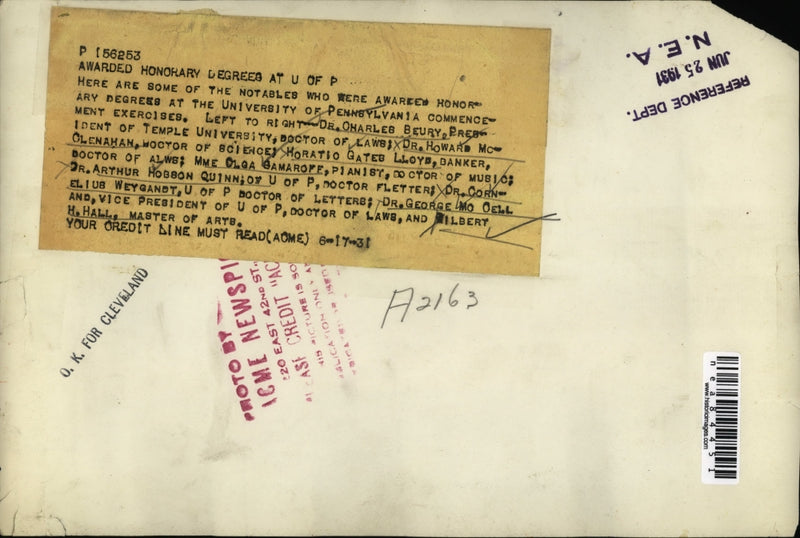 P 156253
AWARDED HONORARY DEGREES AT U OF P
HERE ARE SOME OF THE NOTABLES WHO WERE AWARDED HONOR-
ARY DEGREES AT THE UNIVERSITY OF PENNSYLVANIA COMMENCE-
MENT EXERCISES. LEFT TO RIGHT--DR. CHARLES BEURY, PRES-
IDENT OF TEMPLE UNIVERSITY, DOCTOR OF LAWS; DR. HOWARD MC-
CLENAHAN, DOCTOR OF SCIENCE; HORATIO GATES LLOYD, BANKER,
DOCTOR OF ALWS; MME OLGA SAMAROFF, PIANIST, DOCTOR OF MUSIC;
DR. ARTHUR HOBSON QUINN, OF U OF P, DOCTOR FLETTER; DR. CORN-
ELIUS WEYGANDT, U OF P DOCTOR OF LETTERS; DR. GEORGE MC CELL
AND, VICE PRESIDENT OF U OF P, DOCTOR OF LAWS, AND WILBERT
H. HALL, MASTER OF ARTS.
YOUR CREDIT LINE MUST READ (ACME) 6-17-31
REFERENCE DEPT.
JUN 25 1931
N. E. A.
O. K. FOR CLEVELAND
PHOTO BY
ACME NEWSPI
220 EAST 42ND ST.
CREDIT "AC
PICTURE IS SO
ONLY
A2163
nea84451
www.historicimages.com